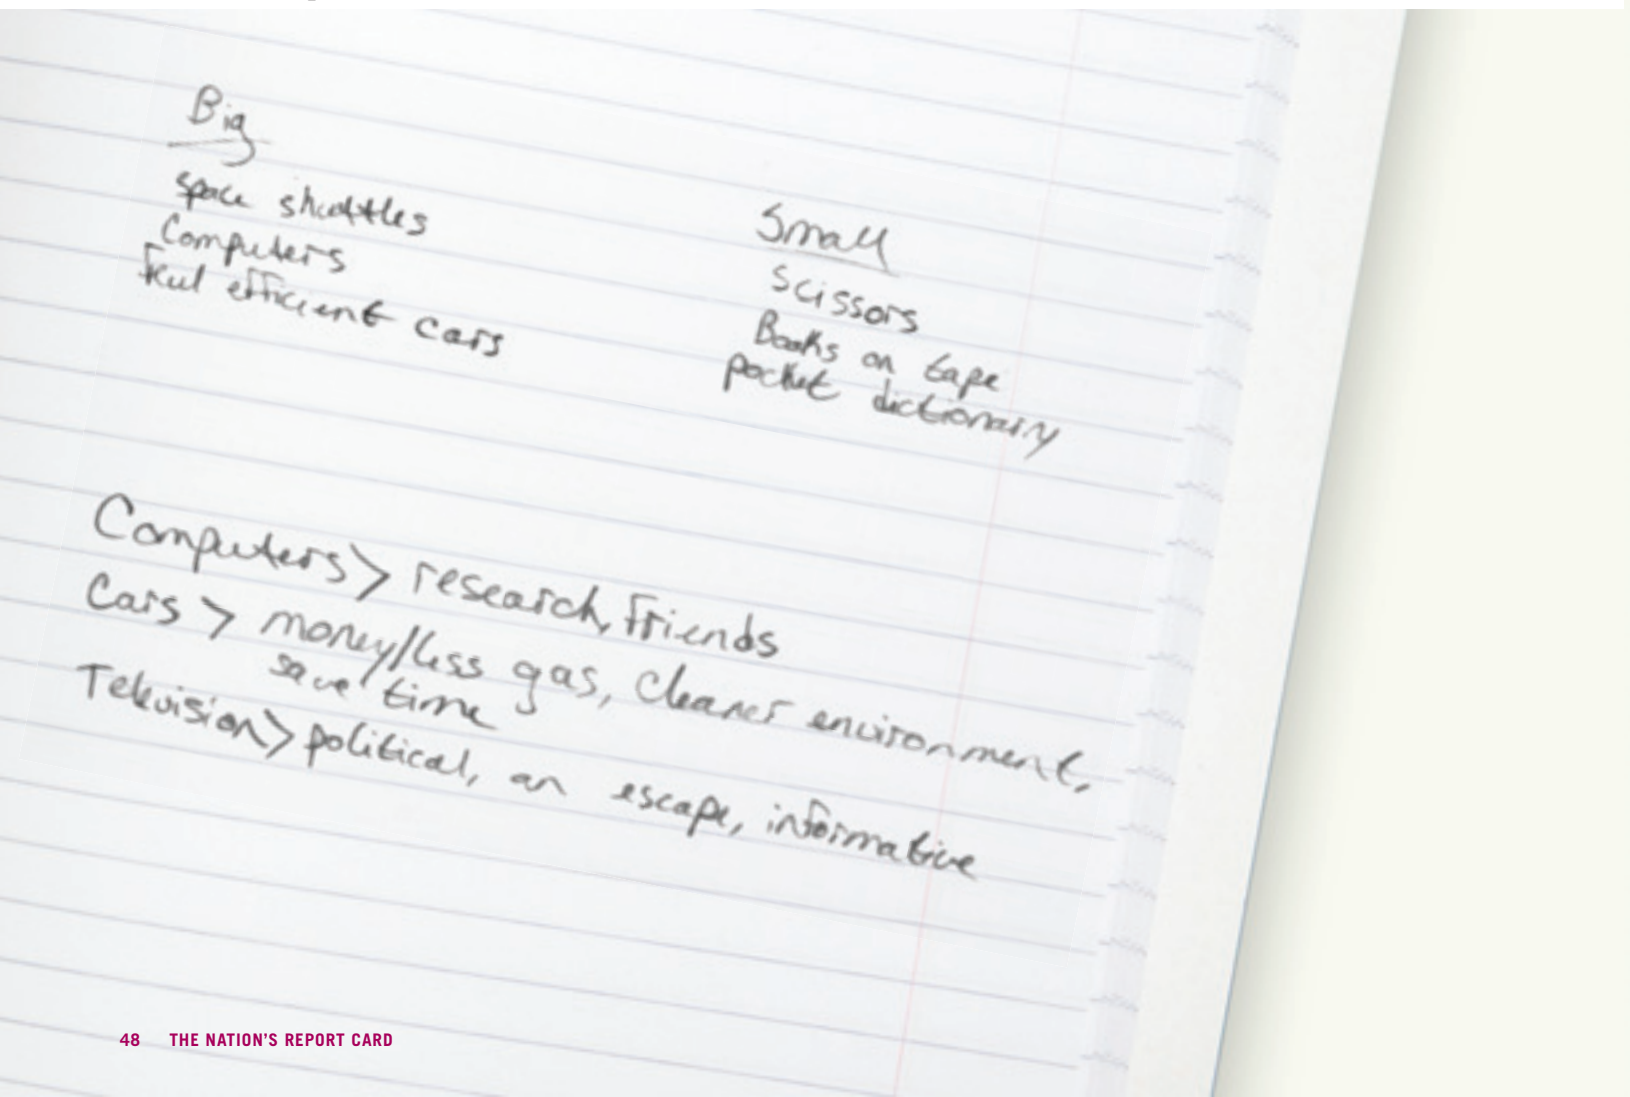 Big
space shuttles
Computers
fuel efficient cars
Small
Scissors
Books on tape
pocket dictionary
Computers> research, friends
Cars > money/less gas, cleaner environment,
save time
Television> political, an escape, informative
48 THE NATION'S REPORT CARD